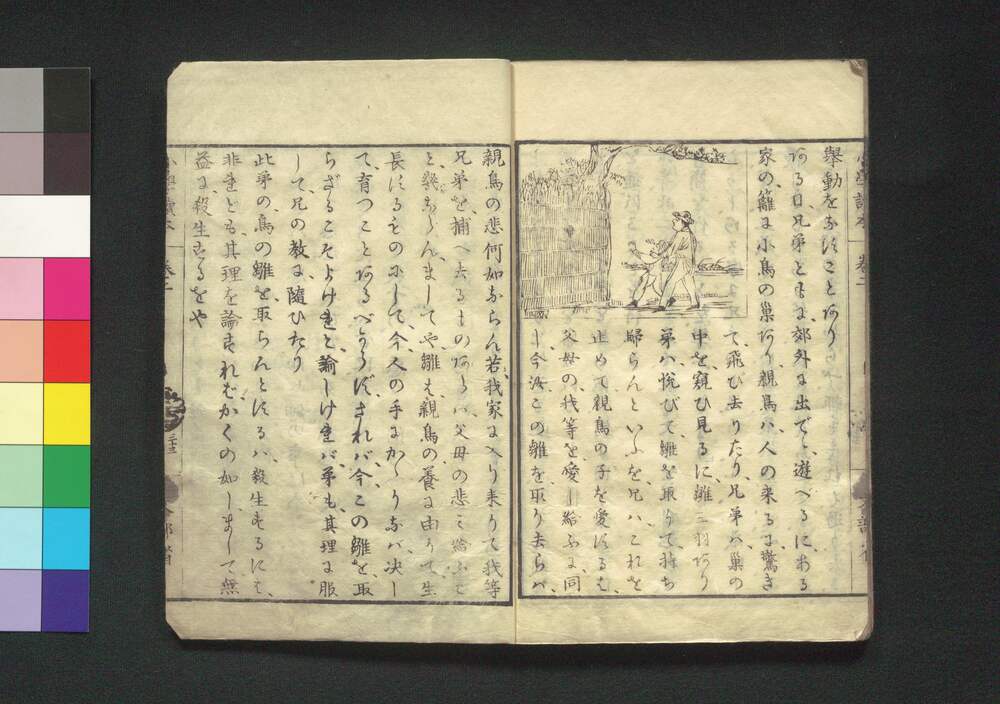 擧動をなすことあり
ある日兄弟ともに、郊外に出でゝ遊べるに、ある
家の籬に小鳥の巣あり、親鳥ハ、人の來るに驚き
て、飛び去りたり、兄弟ハ、巣の
中を、窺ひ見るに、雛二羽あり
弟ハ、悦びて、雛を取りて、持ち
歸らんと、いふを、兄ハ、これを
止めて、親鳥の子を愛するも、
父母の、我等を、愛し給ふに、同
し、今汝この雛を取り去らバ、
親鳥の悲何如ならん、若我家に入り来りて、我等
兄弟を、捕へ去るものあらバ、父母の悲み給ふこ
と、幾ならん、まして、や、雛も、親鳥の養に由りて、生
長するものにして、今人の手にかゝりなバ、决し
て、育つことあるべからず、されバ、今この雛を、取
らざるこそよけれと、諭しけれバ、弟も、其理に服
して、兄の教に隨ひたり
此弟の、鳥の雛を、取らんとするハ、殺生するにも、
非ざれども、其理を論ずれバ、かくの如し、まして、無
益に、殺生するをや
小學讀本
卷二
三十三